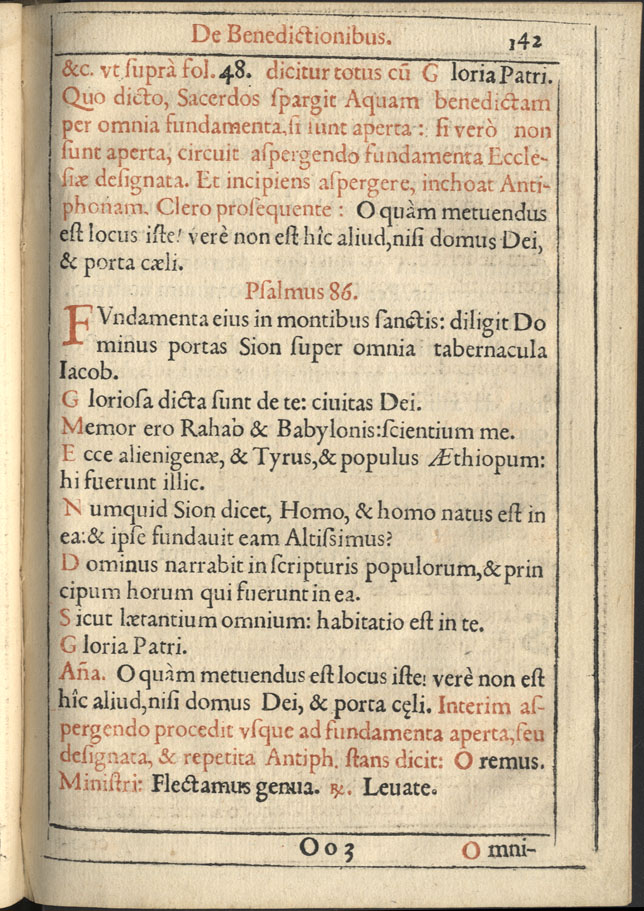 De Benedictionibus. 142
&c. vt suprà fol. 48. dicitur totus cũ G loria Patri.
Quo dicto, Sacerdos spargit Aquam benedictam
per omnia fundamenta, si sunt aperta: si verò non
sunt aperta, circuit aspergendo fundamenta Eccle-
siæ designata. Et incipiens aspergere, inchoat Anti-
phonam. Clero prosequente: O quàm metuendus
est locus iste! verè non est hîc aliud, nisi domus Dei,
& porta cæli.
Psalmus 86.
FVndamenta eius in montibus sanctis: diligit Do
minus portas Sion super omnia tabernacula
Iacob.
G loriosa dicta sunt de te: ciuitas Dei.
Memor ero Rahab & Babylonis: scientium me.
E cce alienigenæ, & Tyrus, & populus Æthiopum:
hi fuerunt illic.
N umquid Sion dicet, Homo, & homo natus est in
ea: & ipse fundauit eam Altissimus?
D ominus narrabit in scripturis populorum, & prin
cipum horum qui fuerunt in ea.
S icut lætantium omnium: habitatio est in te.
G loria Patri.
Aña. O quàm metuendus est locus iste! verè non est
hîc aliud, nisi domus Dei, & porta cęli. Interim as-
pergendo procedit vsque ad fundamenta aperta, seu
designata, & repetita Antiph. stans dicit: O remus.
Ministri: Flectamus genua. ℞. Leuate.
Oo3 O mni-